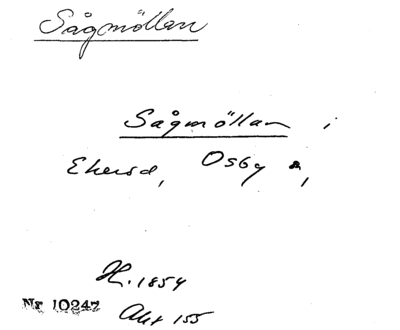 Sågmöllan
Sågmöllan i
Ekeröd, Osby s,
H. 1854
Nr 10247
Akt 155